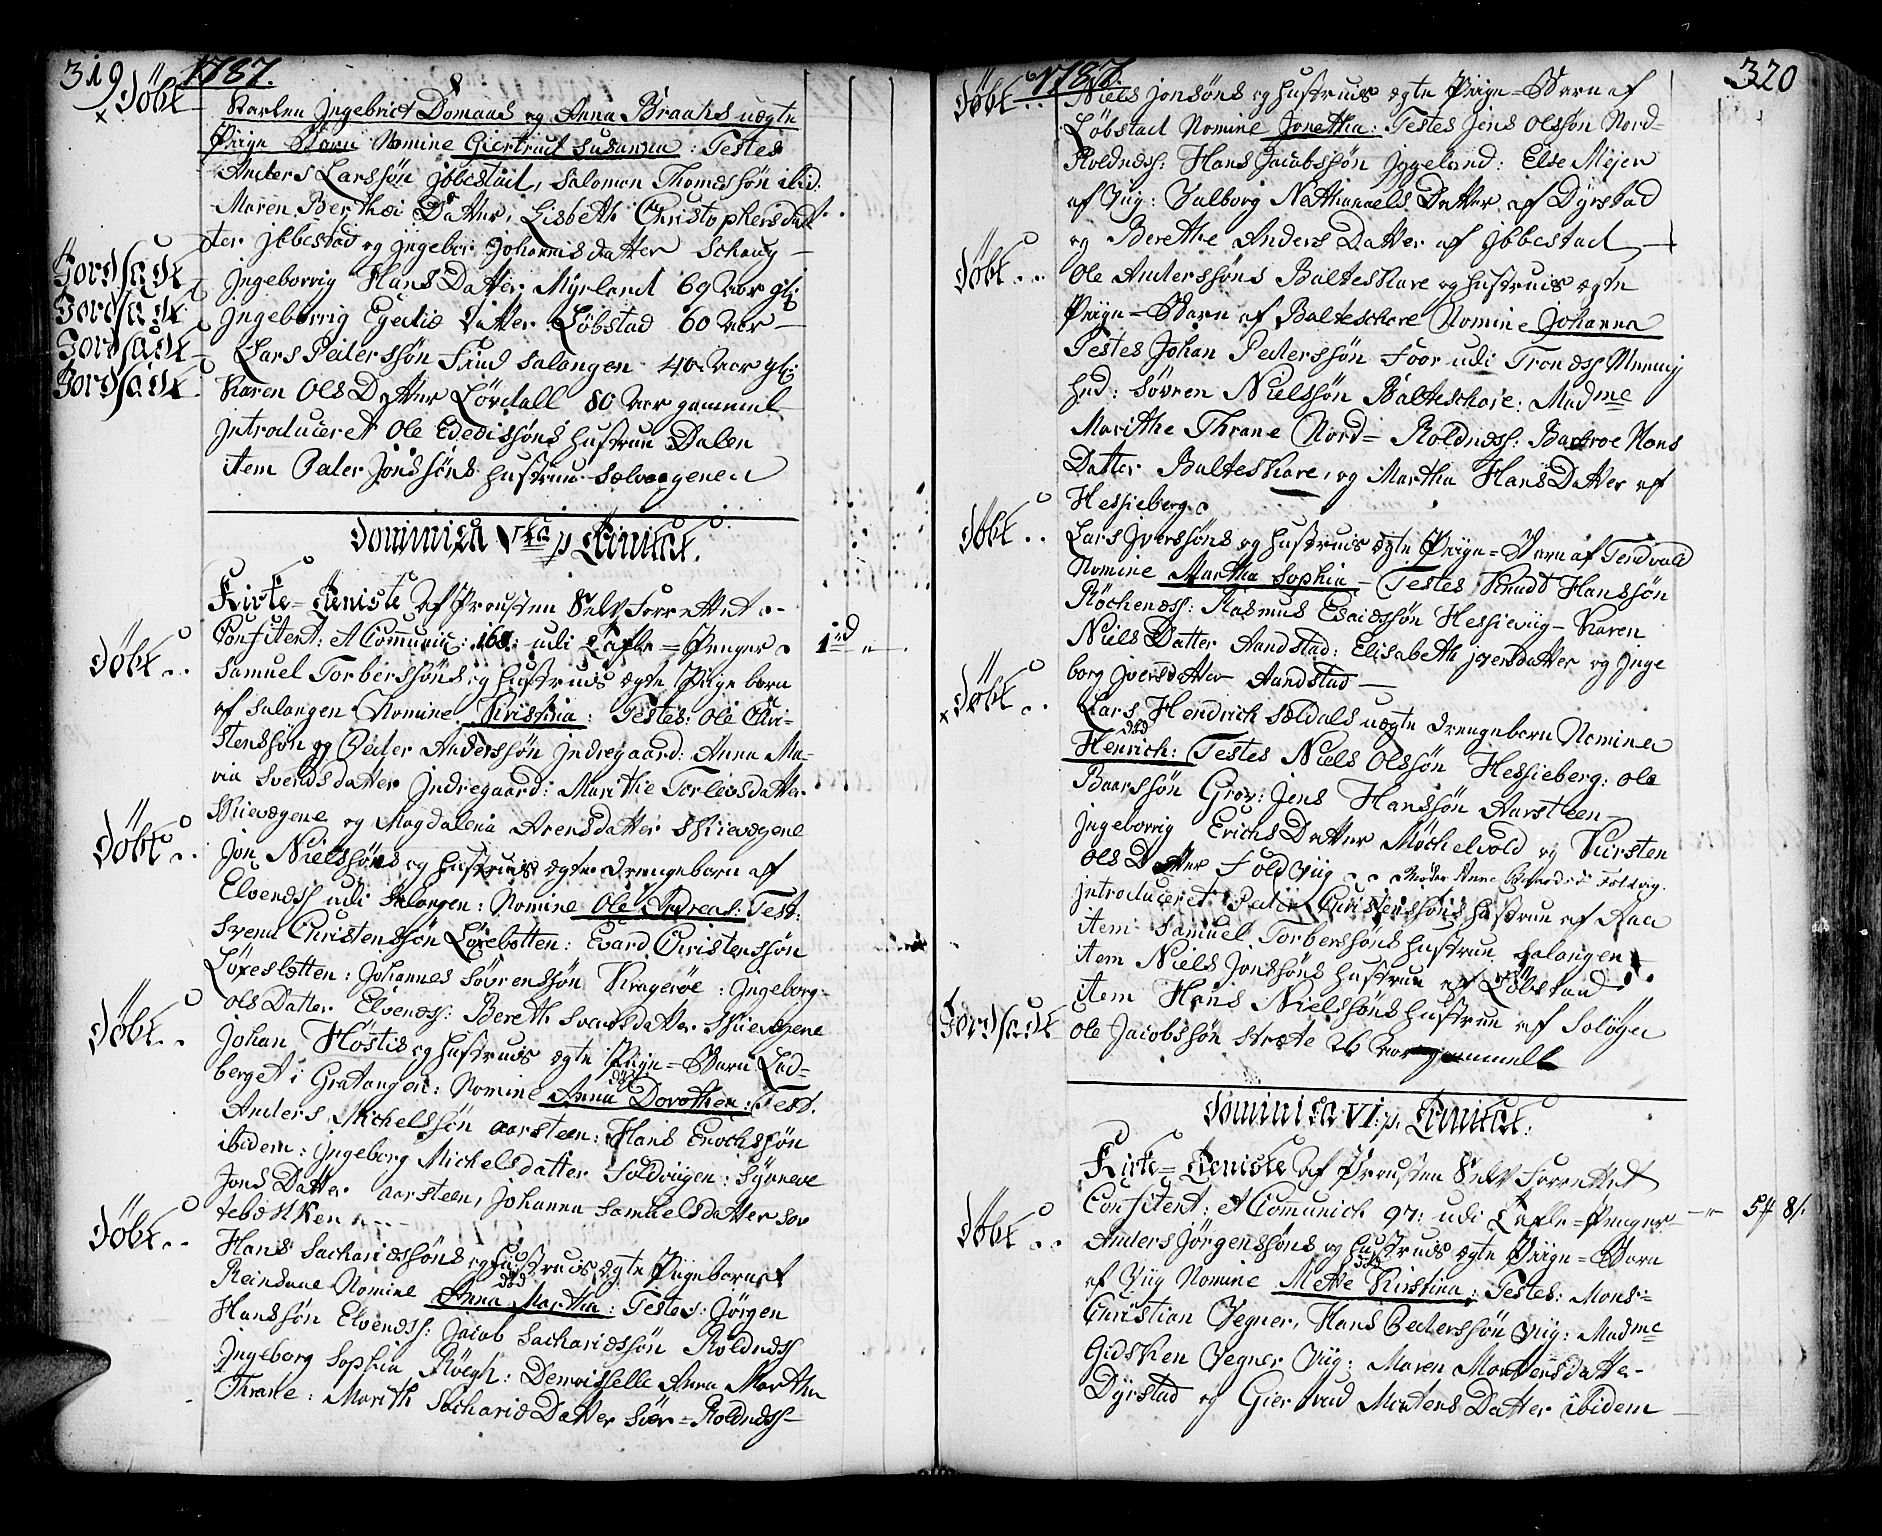 319 1787.
Døbt
Karlen Ingebrict Domaas og Anna Braaks uægte
Piige Barn Nomine Giertrud Susanna: Testes
Anders Larssøn Ibbestad, Salomon Thomessøn ibid:
Maren Berthei Datter, Lisbeth Christophersdat-
ter Ibbestad og Ingebor Johannisdatter Schaug –
Jordfæstet Ingeborrig Hans Datter Myrland 69 Aar gl:
Jordfæstet Ingeborrig Egedie Datter Løbstad 60 Aar –
Jordfæstet Lars Pederssøn Sund Salangen 40 Aar gl:
Jordfæstet Karen Ols Datter Lørdall 80 Aar gammel
Introduceret Ole Ededissøns Hustrue Dalen
item Peder Jonssøns Hustrue Sælvaagene
Dominica Vta p Trinitat.
Kirke-Teniste Af Prousten Selv Forrettet.
Confitent: et Comunic: 168: udi Tafle-Penger 1rd „
Døbt.. Samuel Torberssøns og Hustrues ægte Piige barn
af Salangen Nomine Kristina: Testes: Ole Chri-
stenssøn og Peder Anderssøn Indregaard: Anna Ma-
ria Svendsdatter Indregaard: Marithe Torleusdatter
Skievægene og Magdalena Arensdatter Skievægene
Døbt.. Jon Nielssøns og Hustrues ægte Drengebarn af
Elvenæss udi Salangen: Nomine Ole Andreas: Test:
Svend Christenssøn Løxebotten: Evard Christenssøn
Løxesletten: Johannes Søvrenssøn Kragerøe: Ingeborg
Ols Datter Elvenæss: Bereth Svendsdatter Skievægene
Døbt.. Johan Høstis og Hustrues ægte Piige-Barn Lad-
berget i Gratangen: Nomine Anna Dorothea: Test.
død
Anders Michelssøn Aarsteen: Hans Enochssøn
ibidem: Ingeborg Michelsdatter Foldvigen: Synneve
Jons Datter Aarsteen, Johanna Samuelsdatter Sor
Døbt.. Hans Sachariæssøns og Hustrues ægte Piigebarn af
Reindaue Nomine Anna Martha: Testes: Jørgen
død
Hanssøn Elvenæss: Jacob Sachariæssøn Roldnæss
Ingeborg Sophia Røegh: Demoiselle Anna Martha
Thrane: Marith Sachariæ Datter Siør-Roldnæss-
1787. 320
Døbt.. Niels Jonsøns og Hustrues ægte Piige-Barn af
Løbstad Nomine Jonetha: Testes Jens Olssøn Nord-
Roldnæss: Hans Jacobssøn Iggeland: Else Mejer
af Viig: Valborg Nathanaels Datter af Dyrstad
og Berethe Anders Datter af Ibbestad –
Døbt.. Ole Anderssøns Balteskare og Hustrues ægte
Piige-Barn af Balteschare Nomine Johanna
Testes Johan Pederssøn Foor udi Trondss Menig
hed: Søvren Nielssøn Balteschare: Madme
Marithe Thrane Nord-Roldnæss: Barbroe Hans
Datter Balteskare, og Martha Hans Datter af
Hessieberg.
Døbt.. Lars Iverssøns og Hustrues ægte Piige-Barn af Tendvald
Nomine Martha Sophia – Testes Knudt Hanssøn
Røchenæss: Rasmus Esaiæssøn Hessieviig – Karen
Niels Datter Aandstad: Elisabeth Iversdatter og Inge
borg Iversdatter Aandstad –
Døbt.. Lars Hendrich Sældals uægte Drengebarn Nomine
død
Henrich: Testes Niels Olssøn Hessieberg: Ole
Baarssøn Grov: Jens Hanssøn Aarsteen
Ingeborrig Erichs Datter Møchelvold og Kirsten
Ols Datter Foldviig .. Moder Anne Foldvig.
Introduceret Peder Christenssøns Hustrue af Aaa
item Samuel Torberssøns Hustrue Salangen
item Niels Jonssøns Hustrue af Løbstad
item Hans Nielssøns Hustrue af Soløyen
Jordfæstet Ole Jacobssøn Stræte 26 Aar gammell
Dominica VI: p. Trinitat:
Kirke-Teniste Af Prousten Selv Forrettet
Confitent: et Comunich 97: udi Tafle-Penger – „ 5# 8/.
Døbt.. Anders Jørgenssøns og Hustrues ægte Piige-Barn
død
af Viig Nomine Mette Kirstina: Testes: Mons:
Christian Vegner, Hans Pederssøn Viig: Madme
Gidsken Vegner Viig: Maren Mortensdatter
Dyrstad og Giertrud Mortens Datter ibidem –